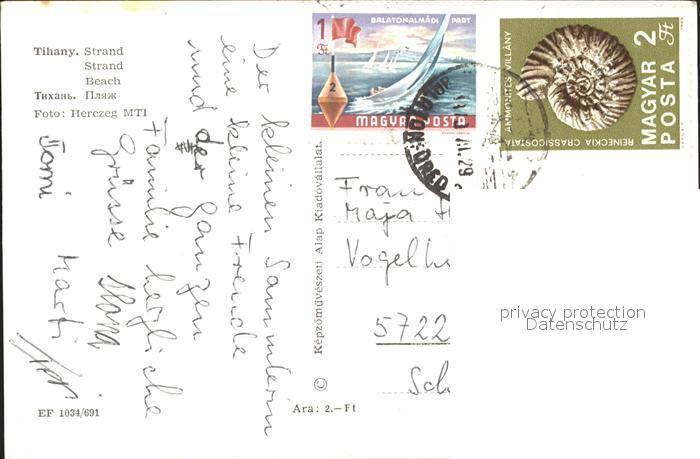 Tihany. Strand
Strand
Beach
Тихань. Пляж
Foto: Herczeg MTI
1 Ft
BALATONALMÁDI PART
2
MAGYAR POSTA
AMMONITES VILLÁNY
REINECKIA CRASSICOSTATA
MAGYAR
POSTA
2 Ft
Der kleinen Sammlerin
eine kleine Freude
und der Ganzen
Familie herzliche
Grüsse
Tomi Marti
Képzőművészeti Alap Kiadóvállalat.
Frau
Maja
Vogelh
5722
Sch
privacy protection
Datenschutz
EF 1034/691
Ára: 2.– Ft